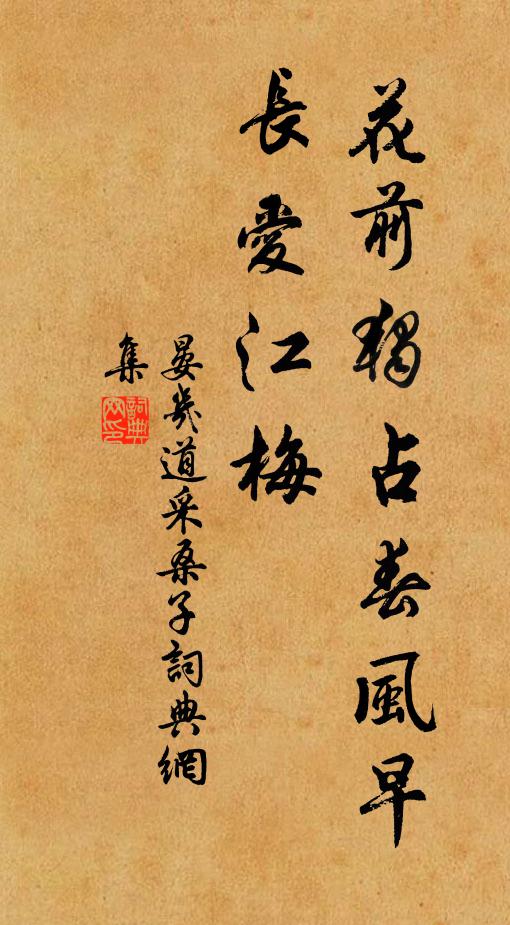 花前獨占春風早
長愛江梅
晏幾道采桑子詞典網
集
詞典網印